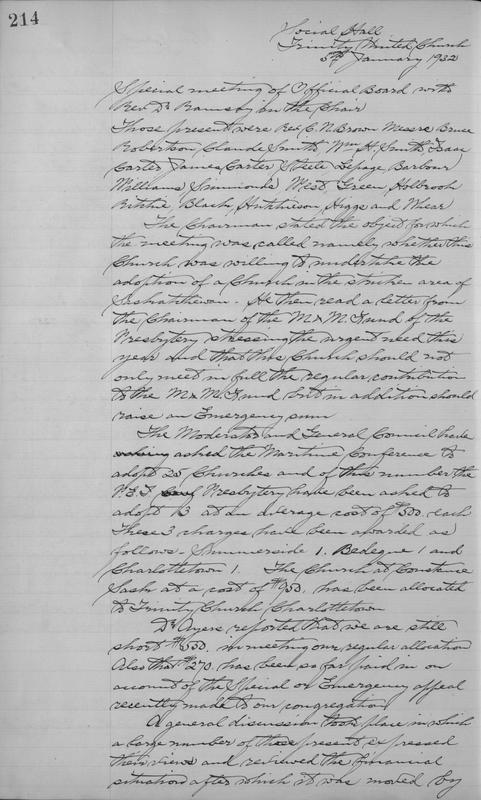 214
Social Hall
Trinity United Church
5th January 1932
Special meeting of Official Board with
Rev Dr Ramsay in the Chair
Those present were Rev C. N. Brown Messrs Bruce
Robertson, Claude Smith, Wm H. Smith, Isaac
Carter, James Carter, Steele Lepage, Barbour
Williams, Simmonds, West, Green, Holbrook
Ritchie, Black, Hutchison, Higgs and Shear
The Chairman stated the object for which
the meeting was called namely whether this
Church was willing to undertake the
adoption of a Church in the stricken area of
Saskatchewan. He then read a letter from
the Chairman of the M & M Fund of the
Presbytery stressing the urgent need this
year and that this Church should not
only meet in full the regular contribution
to the M & M Fund but in addition should
raise an Emergency sum
The Moderator and General Council have
asked the Maritime Conference to
adopt 25 Churches and of this number the
P.E.I. Presbytery have been asked to
adopt 3 at an average cost of $500. each
These 3 charges have been awarded as
follows. Summerside 1. Bedeque 1 and
Charlottetown 1. The Church at Constance
Sask at a cost of $950. has been allocated
to Trinity Church Charlottetown
Dr Ayers reported that we are still
short $550. in meeting our regular allocation
Also that $270. has been so far paid in on
account of the Special or Emergency appeal
recently made to our congregation
A general discussion took place in which
a large number of those present expressed
their views and reviewed the financial
situation after which it was moved by